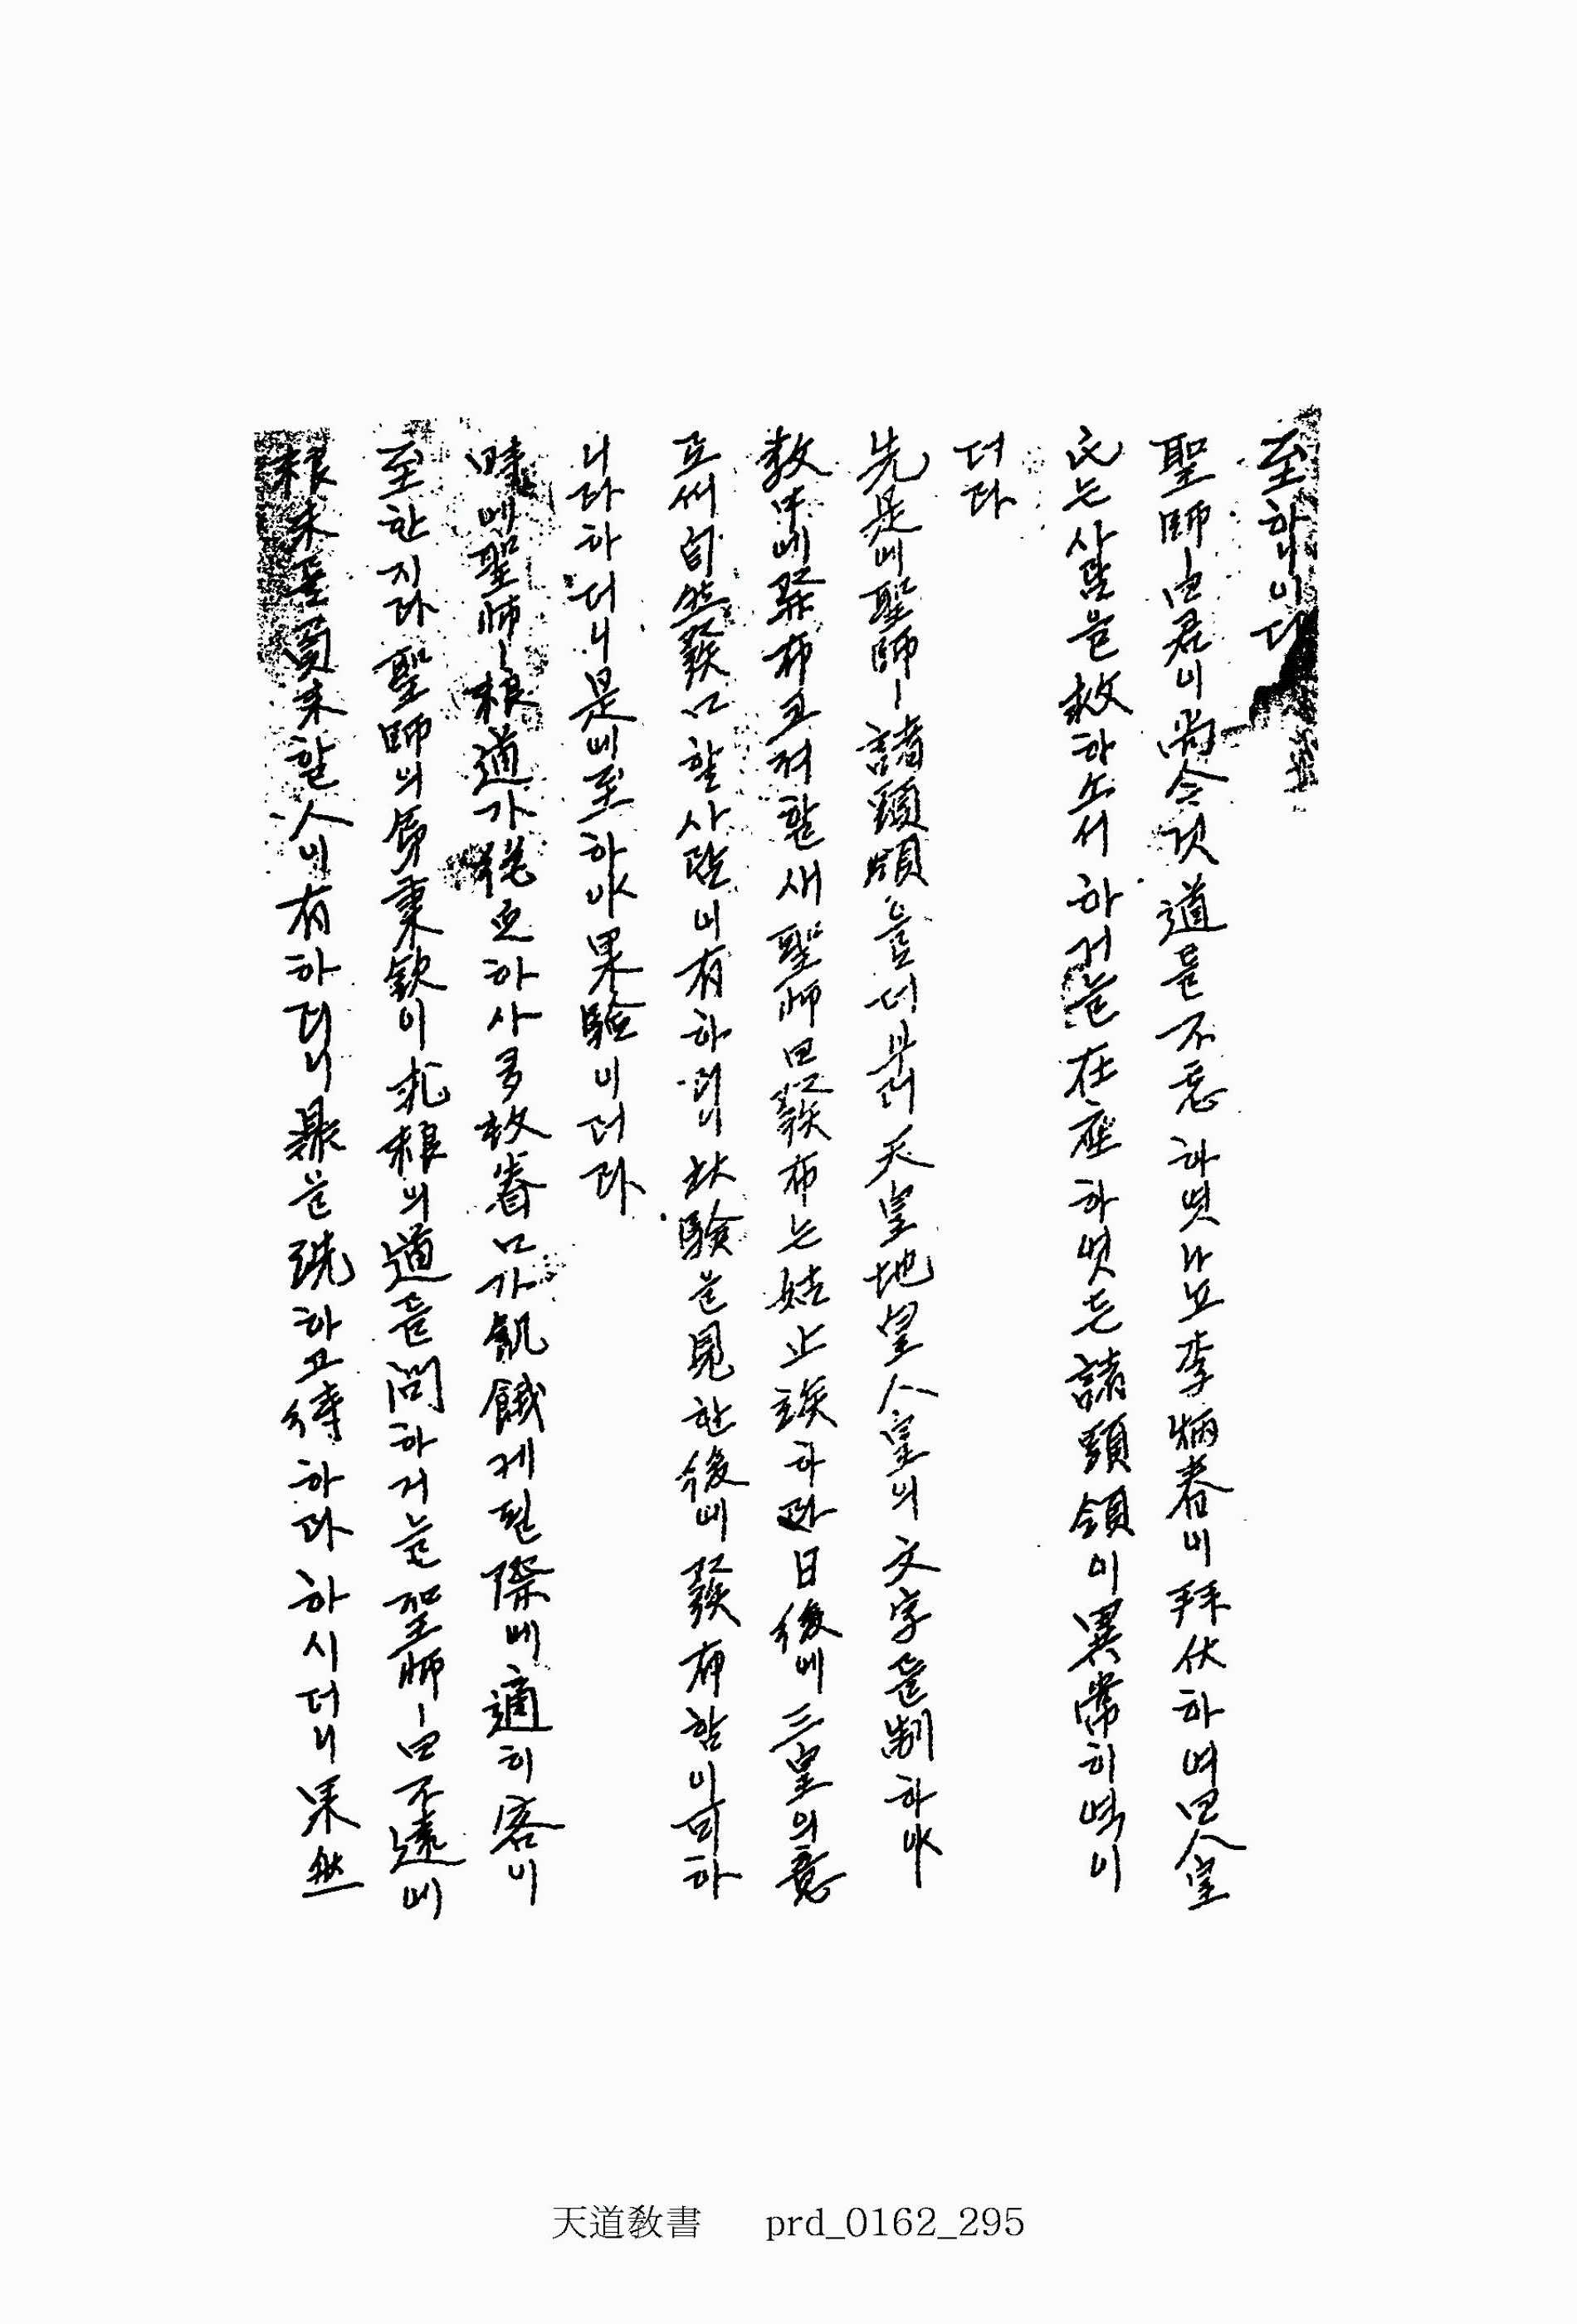 至하니이다
聖師ㅣ曰君이尙今것道를不忘하엿나뇨李炳春이拜伏하여曰人皇
氏는사람을救하소서하거늘在座하엿든諸頭領이異常히역이
더라
先是에聖師ㅣ諸頭領을더부러天皇地皇人皇의文字를制하야
敎中에發布코저할새聖師曰發布는姑止竢하라日後에三皇의意
로써自然發口할사람이有하리니狀驗을見한後에發布함이可하
니라하더니是에至하야果驗이더라
時에聖師ㅣ粮道가絶乏하사多數眷口가飢餓케된際에適히客이
至한지라聖師의 秉欽이 粮의道를問하거늘聖師ㅣ曰不遠에
粮米를買來할人이有하리니鼎을洗하고待하라하시더니果然
天道敎書 prd_0162_295